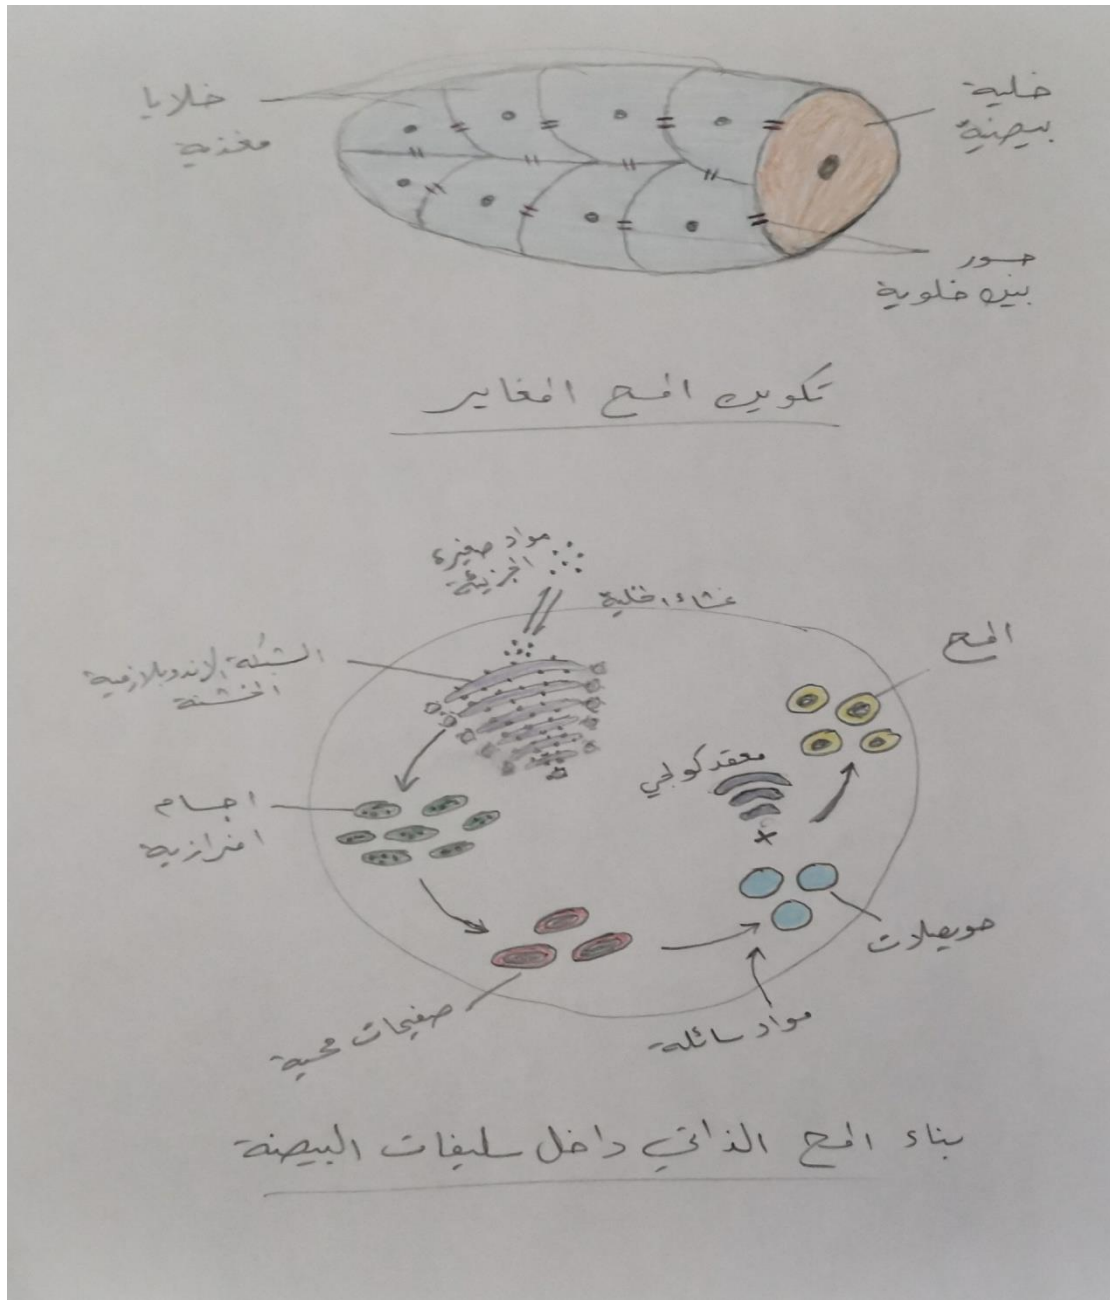 خلايا
مغذية
خلية
بيضية
جسور
بين خلوية
تكوين المح المغاير
مواد صغيرة
الجزيئة
غشاء الخلية
الشبكة الاندوبلازمية
الخشنة
المح
معقد كولجي
اجسام
افرازية
حويصلات
صفيحات محية
مواد سائلة
بناء المح الذاتي داخل سليفات البيضة